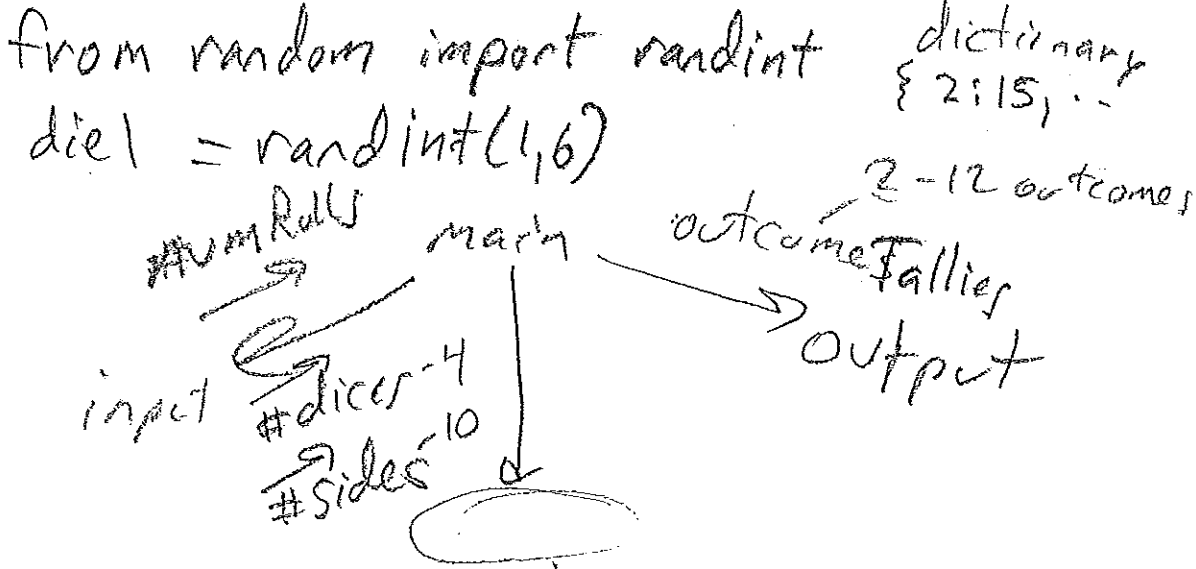 from random import randint
dictionary
{ 2:15, ..
die1 = randint(1,6)
2-12 outcomes
numRolls
main
outcomeTallies
output
input
#dices-4
#sides-10